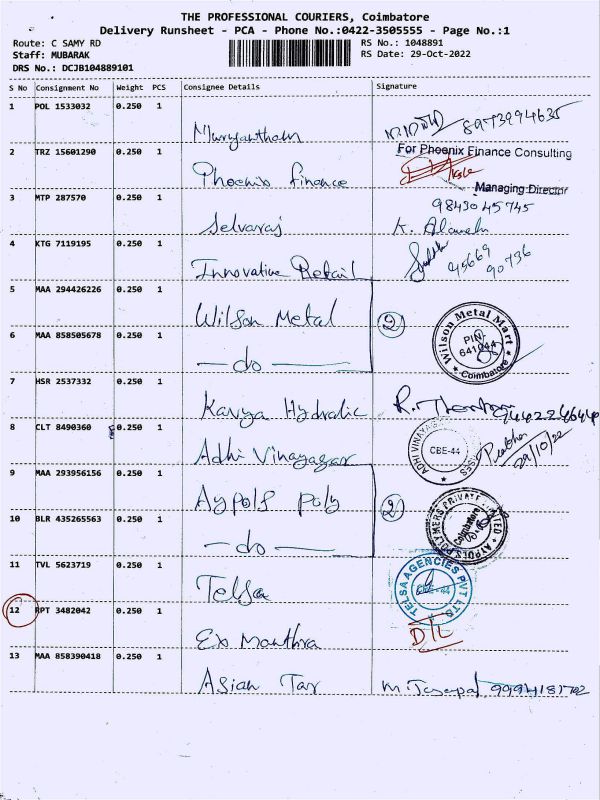 THE PROFESSIONAL COURIERS, Coimbatore
Delivery Runsheet - PCA - Phone No.:0422-3505555 - Page No.:1
Route: C SAMY RD RS No.: 1048891
Staff: MUBARAK RS Date: 29-Oct-2022
DRS No.: DCJB104889101
S No Consignment No Weight PCS Consignee Details Signature
1 POL 1533032 0.250 1
8973994635
2 TRZ 15601290 0.250 1 For Phoenix Finance Consulting
Phoenix finance
Managing Director
3 MTP 287570 0.250 1 9843045745
Selvaraj K.
4 KTG 7119195 0.250 1
Innovative Retail 95669 90736
5 MAA 294426226 0.250 1
Wilson Metal 2
Wilson Metal Mart PIN- 641044 Coimbatore
6 MAA 858505678 0.250 1
do
7 HSR 2537332 0.250 1
Kavya Hydralic R.
8 CLT 8490360 0.250 1
Adhi Vinayagar ADHI VINAYAG CBE-44 SSES Prabha 29/10/22
9 MAA 293956156 0.250 1
Aypols poly 2
AYPOLS POLYMERS PRIVATE LIMITED Coimbatore
10 BLR 435265563 0.250 1
do
11 TVL 5623719 0.250 1
Telsa TELSA AGENCIES PVT LTD CBE-44
12 RPT 3482042 0.250 1
Ex Manthra D/L
13 MAA 858390418 0.250 1
Asian Tax